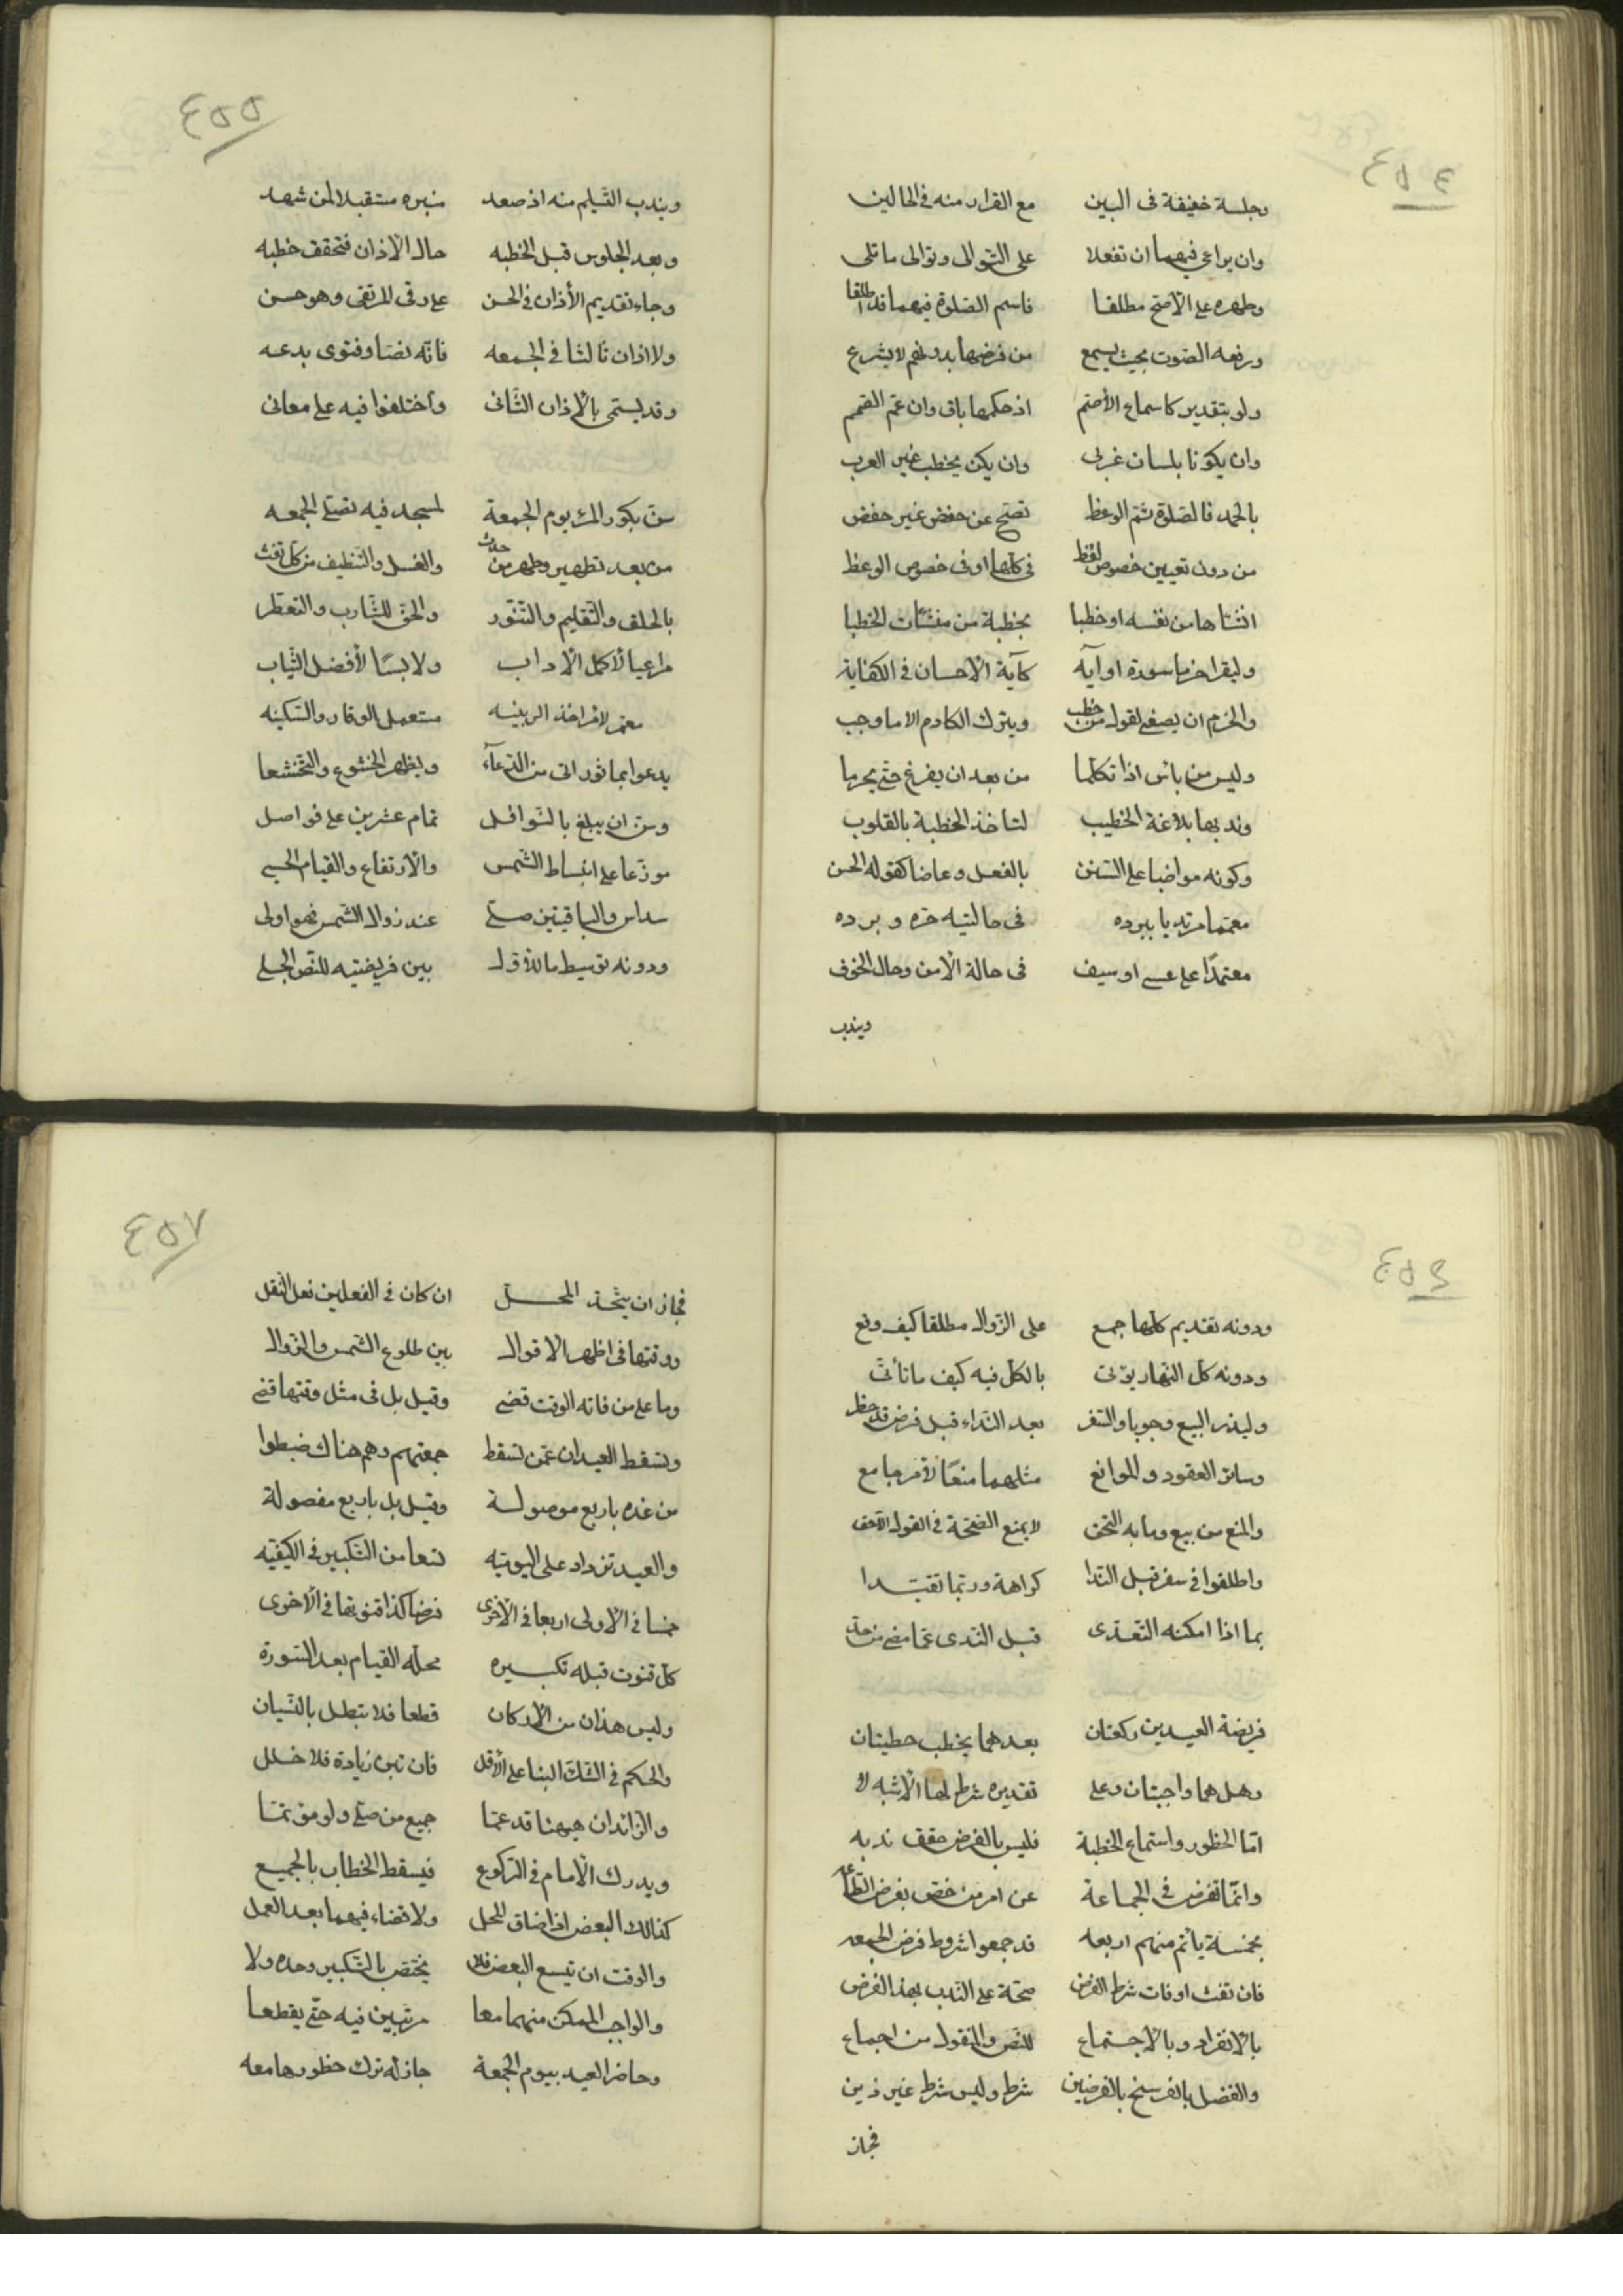 ٤٥٤
وجلسة خفيفة فى البين مع القرار منه فى الحالين
وان يراعى فيهما ان تفعلا على التوالى وتوالى ما تلى
وطهره على الأصح مطلقا فاسم الصلوة فيهما قد اطلقا
ورفعه الصوت بحيث يسمع من فرضها بدونهم لا يشرع
ولو بتقدير كاسماع الأصم اذ حكمها باق وان عم الصمم
وان يكونا بلسان عربى وان يكن يخطب غير العرب
بالحمد فالصلوة ثم الوعظ تصح عن حفض غير حفض
من دون تعيين خصوص لفظ فى كلها او فى خصوص الوعظ
انشاها من نفسه او خطبا بخطبة من منشآت الخطبا
وليقرا حزما سورة او آية كآية الاحسان فى الكفاية
والحزم ان يصغى لقول من خطب ويترك الكلام الا ما وجب
وليس من باس اذا تكلما من بعد ان يفرغ حتى يحرما
وندبها بلاغة الخطيب لتاخذ الخطبة بالقلوب
وكونه مواضبا على السنن بالفعل وعاضا كقوله الحسن
معتمما مرتديا ببرده فى حالتيه حره وبرده
معتمدا على عسى او سيف فى حالة الأمن وحال الخوف
ويندب
٤٥٥
ويندب التسليم منه اذ صعد منبره مستقبلا لمن شهد
وبعد الجلوس قبل الخطبه حال الأذان فتحقق خطبه
وجاء تقديم الأذان فى الحسن على رقى المرتقى وهو حسن
ولا اذان ثالثا فى الجمعه فانه نصا وفتوى بدعه
وقد يسمى بالأذان الثانى واختلفوا فيه على معانى
سن بكور المرء يوم الجمعة لمسجد فيه تصلى الجمعه
من بعد تطهير وطهر من حدث والغسل والتنظيف من كل تفث
بالحلق والتقليم والتنور والحق للشارب والتعطر
مراعيا لأكمل الاداب ولابسا لأفضل الثياب
لأمر اخذ الزينه مستعمل الوقار والسكينه
يدعوا بماثور اتى من الدعآء ويظهر الخشوع والتخشعا
وسن ان يبلغ بالنوافل تمام عشرين على فواصل
موزعا على انبساط الشمس والأرتفاع والقيام الحسى
سداس والباقيتين صلى عند زوال الشمس فهو اولى
ودونه توسيط ما للأول بين فريضتيه للنص الجلى
٤٥٦
ودونه تقديم كلها جمع على الزوال مطلقا كيف وقع
ودونه كل النهار يؤتى بالكل فيه كيف ما تأتى
وليذر البيع وجوبا والسفر بعد النداء قبل فرض قد حظر
وسائر العقود والموانع مثلهما منعا لأمر جامع
والمنع من بيع وما به التحق لا يمنع الصحة فى القول الأحق
واطلقوا فى سفر قبل الندا كراهة وربما تقيدا
بما اذا امكنه التعدى قبل الندى عما مضى من حد
فريضة العيدين ركعتان بعدهما يخطب خطبتان
وهل هما واجبتان وعلى تقديره شرط لها الأشبه لا
اما الحظور واستماع الخطبة فليس بالفرض حقق ندبه
وانما تفرض فى الجماعة عن امر من خص بفرض الطاعه
بخمسة ياتم منهم اربعه قد جمعوا شروط فرض الجمعه
فان تفت او فات شرط الفرض صحة على الندب بهذ الفرض
بالانفراد وبالأجتماع للنص والمنقول من اجماع
والفضل بالفرسخ بالفرضين شرط وليس شرط غير ذين
فجاز
٤٥٧
فجاز ان يتحد المحل ان كان فى الفعلين فعل النفل
ووقتها فى اظهر الاقوال بين طلوع الشمس والزوال
وما على من فاته الوقت قضى وقيل بل فى مثل وقتها قضى
وتسقط العيدان عمن تسقط جمعتهم وهم هناك ضبطوا
من غده باربع موصولة وقيل بل باربع مفصولة
والعيد تزداد على اليوميه تسعا من التكبير فى الكيفيه
خمسا فى الأولى اربعا فى الأخرى فرضا كذا قنوتها فى الأخرى
كل قنوت قبله تكبيره محله القيام بعد السورة
وليس هذان من الأركان قطعا فلا تبطل بالنسيان
والحكم فى الشك البنا على الأقل فان تبن زيادة فلا خلل
والزائدان هيهنا قد عما جميع من صلى ولو مؤتما
ويدرك الأمام فى الركوع فيسقط الخطاب بالجميع
كذالك البعض اذا ضاق المحل ولا قضاء فيهما بعد العمل
والوقت ان تيسع البعض فلا يختص بالتكبير وحده ولا
والواجب الممكن منهما معا مرتبين فيه حتى يقطعا
وحاضر العيد بيوم الجمعة جاز له ترك حظورها معه